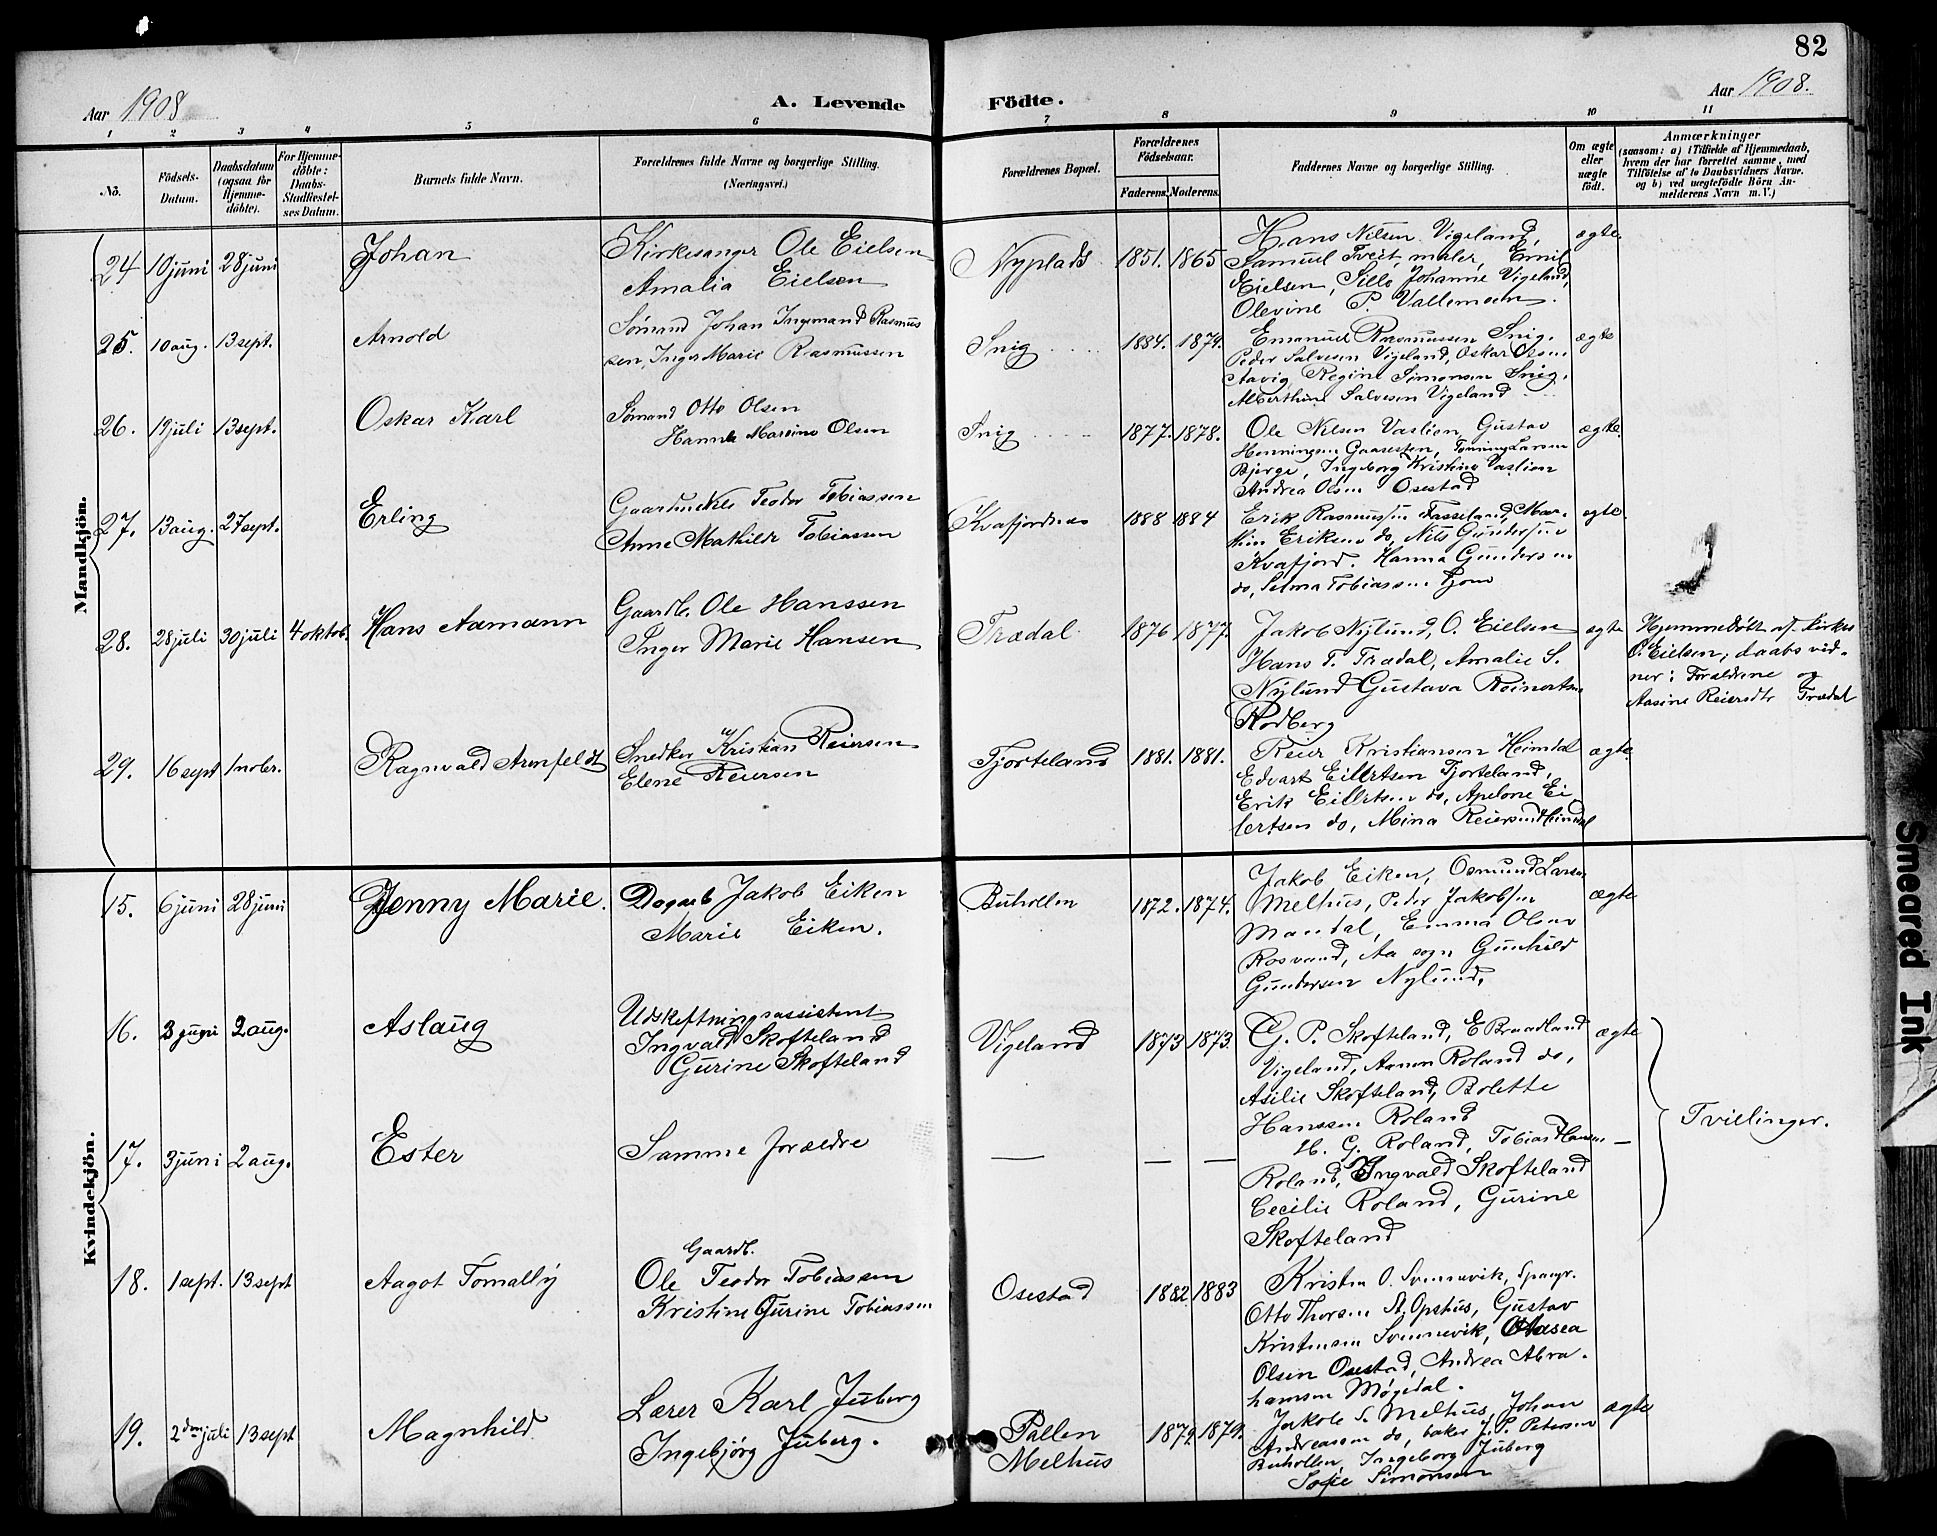 82
Aar 1908
A. Levende Födte.
Aar 1908.
1 2 3 4 5 6 7 8 9 10 11
No.
Födsels-Datum.
Daabsdatum (ogsaa for Hjemme-döbte).
For Hjemme-döbte: Daabs-Stadfæstel-ses Datum.
Barnets fulde Navn.
Forældrenes fulde Navne og borgerlige Stilling. (Næringsvei.)
Forældrenes Bopæl.
Forældrenes Födselsaar.
Faderens. Moderens.
Faddernes Navne og borgerlige Stilling.
Om ægte eller uægte födt.
Anmærkninger
(saasom: a) i Tilfælde af Hjemmedaab, hvem der har forrettet samme, med Tilföielse af to Daabsvidners Navne. og b) ved uægtefödte Börn Anmelderens Navn m. V.)
Mandkjön.
24 10 juni 28 juni Johan
Kirkesanger Ole Eielsen
Amalia Eielsen
Nyplads 1851. 1865
Hans Nilsen Vigeland,
Samuel Tveit, maler, Emil
Eielsen, Sille Johanne Vigeland,
Olevine P. Vallemoen.
ægte
25. 10 aug. 13 sept. Arnold
Sømand Johan Ingemand Rasmus
sen, Inger Marie Rasmussen
Snig 1884. 1879.
Emanuel Rasmussen Snig.
Peder Salvesen Vigeland, Oskar
Regine Simonsen Snig,
Alberthine Salvesen Vigeland
ægte
26. 19 juli 13 sept. Oskar Karl
Sømand Otto Olsen
Hanna Marine Olsen
Snig 1877. 1878.
Ole Nilsen Vaslien, Gustav
Henningsen Gaasesten, Tønning Larsen
Bjerge, Ingeborg Kristine Vaslien
Andrea Olsen Osestad
ægte.
27. 13 aug. 27 sept. Erling
Teodor Tobiassen
Anne Mathilde Tobiassen
Kvafjordnes 1888 1884
Erik Rasmussen Tasseland, Mar-
Eriksen do, Nils Gundersen
Kvafjord. Hanna Gundersen
do, Selma Tobiassen
ægte.
28. 28 juli 30 juli 4 oktob. Hans Aamann
Gaardb. Ole Hanssen
Inger Marie Hansen
Trædal 1876 1877.
Jakob Nylund, O. Eielsen
Hans T. Trædal, Amalie S.
Nylund Gustava Reinertsen
Rødberg
ægte
Hjemmedöbt af Kirkes
O. Eielsen; daabsvid-
ner: Forældrene og
Aasine Reiersdtr Trædal
29. 16 sept 1 nobr. Ragnvald Arnfeldt
Snedker Kristian Reiersen
Elene Reiersen
Tjorteland 1881. 1881.
Reier Kristiansen Heimdal
Edvart Eilertsen Tjorteland,
Erik Eilertsen do, Apelone Ei
lertsen do, Mina Reiersen Heimdal
ægte
Kvindekjön.
15. 6 juni 28 juni Jenny Marie.
Dagarb Jakob Eiken
Marie Eiken.
Buhollen 1872. 1874.
Jakob Eiken, Osmund Larsen
Melhus, Peder Jakobsen
Mandal, Emma Olsen
Rosvand, Aa sogn Gunhild
Gundersen Nylund,
ægte
16. 3 juni 2 aug. Aslaug
Udskiftningsassistent
Ingvald Skofteland
Gurine Skofteland
Vigeland 1873 1873.
G. P. Skofteland, E Braadland
Vigeland, Aanen Roland do,
Asilie Skofteland, Bolette
Hanssen Roland
ægte
17. 3 juni 2 aug. Ester
Samme forældre
— — —
H. G. Roland, Tobias Hansen
Roland, Ingvald Skofteland
Cecilie Roland, Gurine
Skofteland
—
Tvillinger.
18. 1 sept. 13 sept Aagot Tomally
Gaardb.
Ole Teodor Tobiassen
Kristine Gurine Tobiassen
Osestad 1882 1883
Kristen O. Svennevik, Spangr.
Otto Thorsen St. Opshus, Gustav
Kristensen Svennevik, Aasea
Olsen Osestad, Andrea Abra-
hamsen Møgedal.
19. 2den juli 13 sept Magnhild
Lærer Karl Juberg
Ingebjørg Juberg.
Pallen
Melhus
1879 1879.
Jakob S. Melhus, Johan
Andreassen do, baker J. P. Petersen
Buhollen, Ingeborg Juberg
Sofie Simonsen
ægte
Smeared Ink